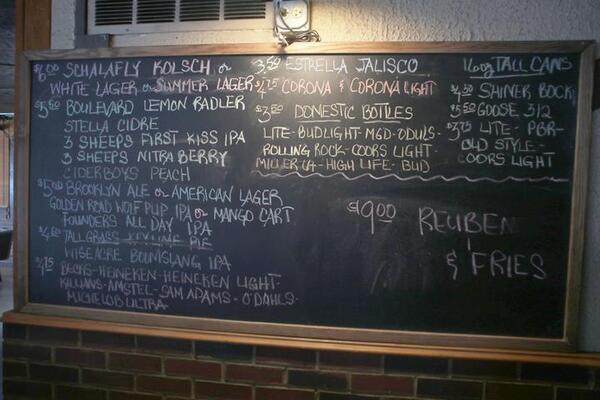 $6.00 SCHALAFLY KOLSCH or
WHITE LAGER or SUMMER LAGER
$5.50 BOULEVARD LEMON RADLER
STELLA CIDRE
3 SHEEPS FIRST KISS IPA
3 SHEEPS NITRA BERRY
CIDERBOYS PEACH
$5.00 BROOKLYN ALE or AMERICAN LAGER
GOLDEN ROAD WOLF PUP IPA or MANGO CART
FOUNDERS ALL DAY IPA
TALLGRASS KEY LIME PIE
WISEACRE BOOMSLANG IPA
BECKS-HEINEKEN-HEINEKEN LIGHT-
KILLIANS-AMSTEL-SAM ADAMS-O'DAHLS-
MICHELOB ULTRA-
3.50 ESTRELLA JALISCO
$4.75 CORONA & CORONA LIGHT
DOMESTIC BOTTLES
LITE-BUDLIGHT-MGD-ODULS-
ROLLING ROCK-COORS LIGHT-
MILLER-HIGH LIFE-BUD
16oz TALL CANS
SHINER BOCK
GOOSE 312
LITE-PBR-
BUD STYLE-
COORS LIGHT
$9.00 REUBEN
& FRIES